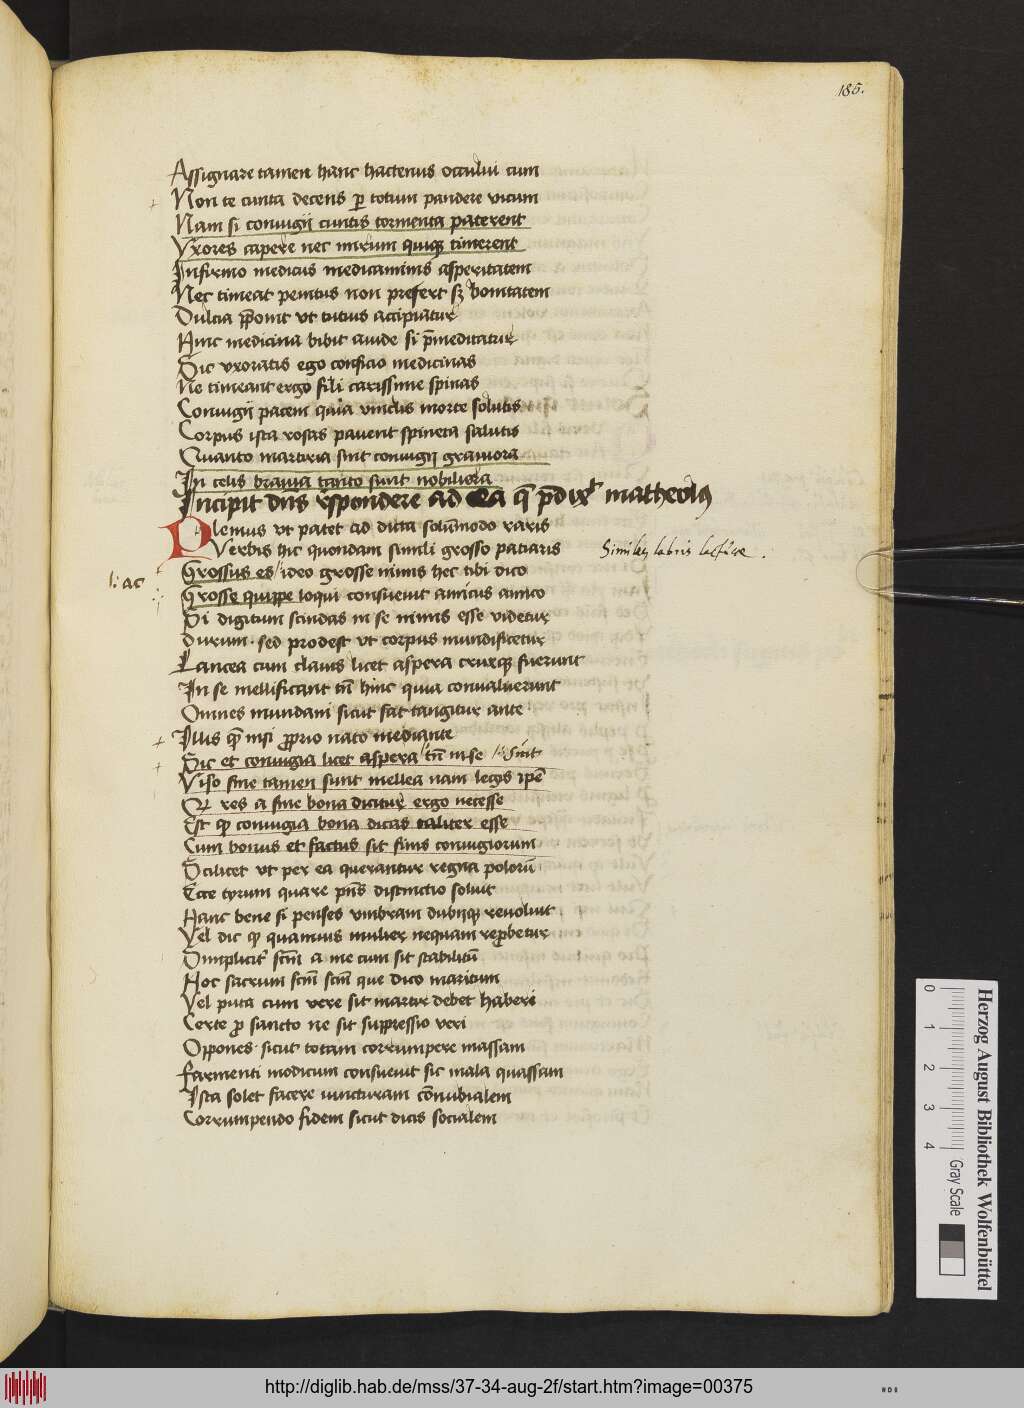 185.
Assignare tamen hanc hactenus occului cum
Non te cunta decens ꝑ totum pandere vicum
Nam si coniugij cuntis tormenta paterent
Vxores capere nec mirum quiqꝫ timerent
Infirmo medicus medicaminis asperitatem
Nec timeat penitus non prefert sꝫ bonitatem
Dulcia p̄ponit vt tutius accipiatur
Hinc medicina bibit auide si p̄meditatur
Sic vxoratis ego conficio medicinas
Ne timeant ergo fili carissime spinas
Coniugij pacem quia vinclis morte solutis
Corpus ista rosas pauent spineta salutis
Quanto martiria sint coniugij grauiora
In celis brauia tanto sunt nobiliora
Incipit dn̄s rn̄spondere ad ea q̄ p̄dixit matheolꝰ
Plemus vt patet ad dicta solūmodo raris
Verbis hic quondam simili grosso patiaris
Similes labris lactuce.
Grossus es ideo grosse nimis hec tibi dico
l: ac
Grosse quippe loqui consueuit amicus amico
Si digitum scindas in se nimis esse videtur
Durum sed prodest vt corpus mundificetur
Lancea cum clauis licet aspera cruxqꝫ fuerunt
In se mellificant tn̄ hinc quia conualuerunt
Omnes mundani sicut fat tangitur ante
Illis q̄ nisi ꝓprio nato mediante
Sic et coniugia licet aspera tn̄ in se sint
Viso fine tamen sunt mellea nam legis ip̄e
Qꝛ res a fine bona dicitur ergo necesse
Est ꝙ coniugia bona dicas taliter esse
Cum bonus et factus sit finis coniugiorum
Scilicet vt per ea querantur regna polorū
Ecce tyrum quare pn̄s distinctio soluit
Hanc bene si penses vmbram dubijqꝫ reuoluit
Vel dic ꝙ quamuis mulier nequam reꝓbetur
Simplicit̄ scm̄ a me cum sit stabilitū
Hoc sacrum scm̄ scm̄ que dico maritum
Vel puta cum vere sit martir debet haberi
Certe ꝓ sancto ne sit suppressio veri
Opones sicut totam corrumpere massam
Fermenti modicum consueuit sic mala quassam
Ista solet facere iuncturam cōnubialem
Corrumpendo fidem sicut dicis socialem
0 1 2 3 4
Gray Scale
Herzog August Bibliothek Wolfenbüttel
http://diglib.hab.de/mss/37-34-aug-2f/start.htm?image=00375